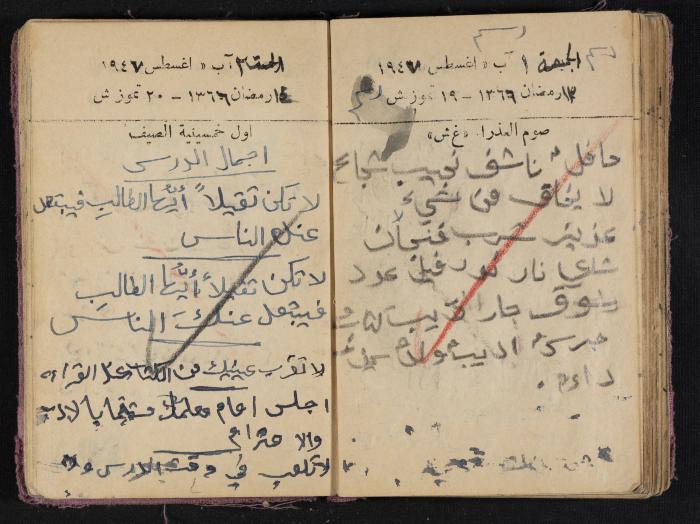 الجمعة ١ آب « اغسطس ١٩٤٧
١٣ رمضان ١٣٦٦ – ١٩ تموز ش
صوم العذراء «غ ش»
حافل ناشف نجيب شجاع
لا يخاف من شيء
عزيز شرب فنجان
شاي نار عود
وق جار
جرس اديب
دائم .
السبت ٢ آب « اغسطس ١٩٤٧
١٤ رمضان ١٣٦٦ – ٢٠ تموز ش
اول خمسينية الصيف
اجمال الدرس
لا تكن ثقيلاً أيُّها الطالب فيبتعل
عنك الناس
لا تكن ثقيلاً أيُّها الطالب
فيبتعل عنكَ الناسَ
لا تقرب عينيك من الكتاب عند القراءه
اجلس امام معلمك بالادب
والاحترام
لا تلعب في وقت الدرس ولا